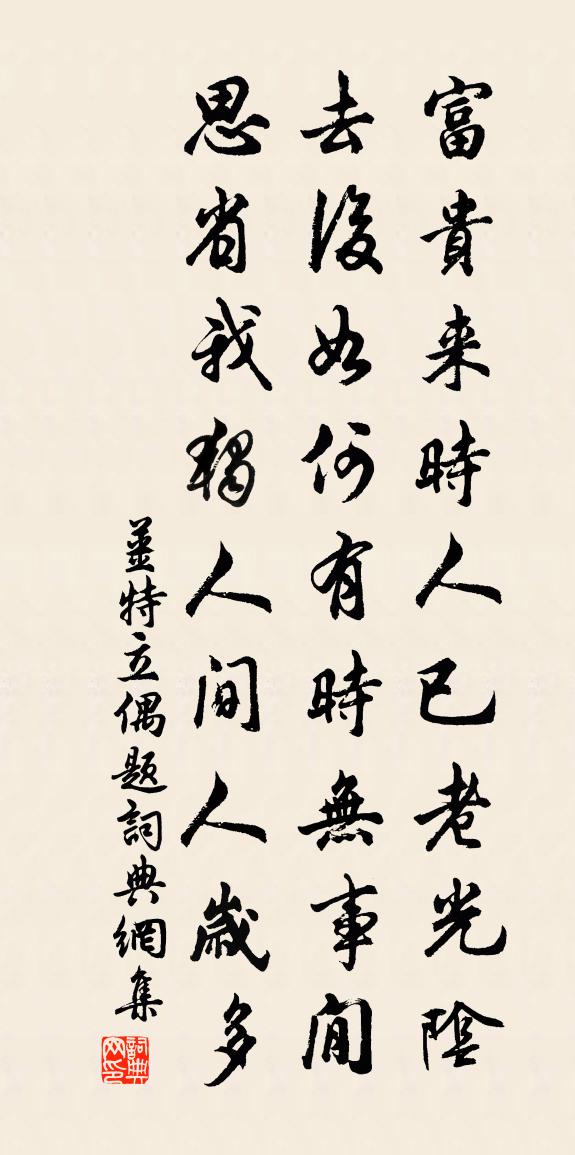 富貴来時人已老光陰
去後如何有時無事閒
思省我獨人間人歲多
薑特立偶題詞典網集
詞典
网印